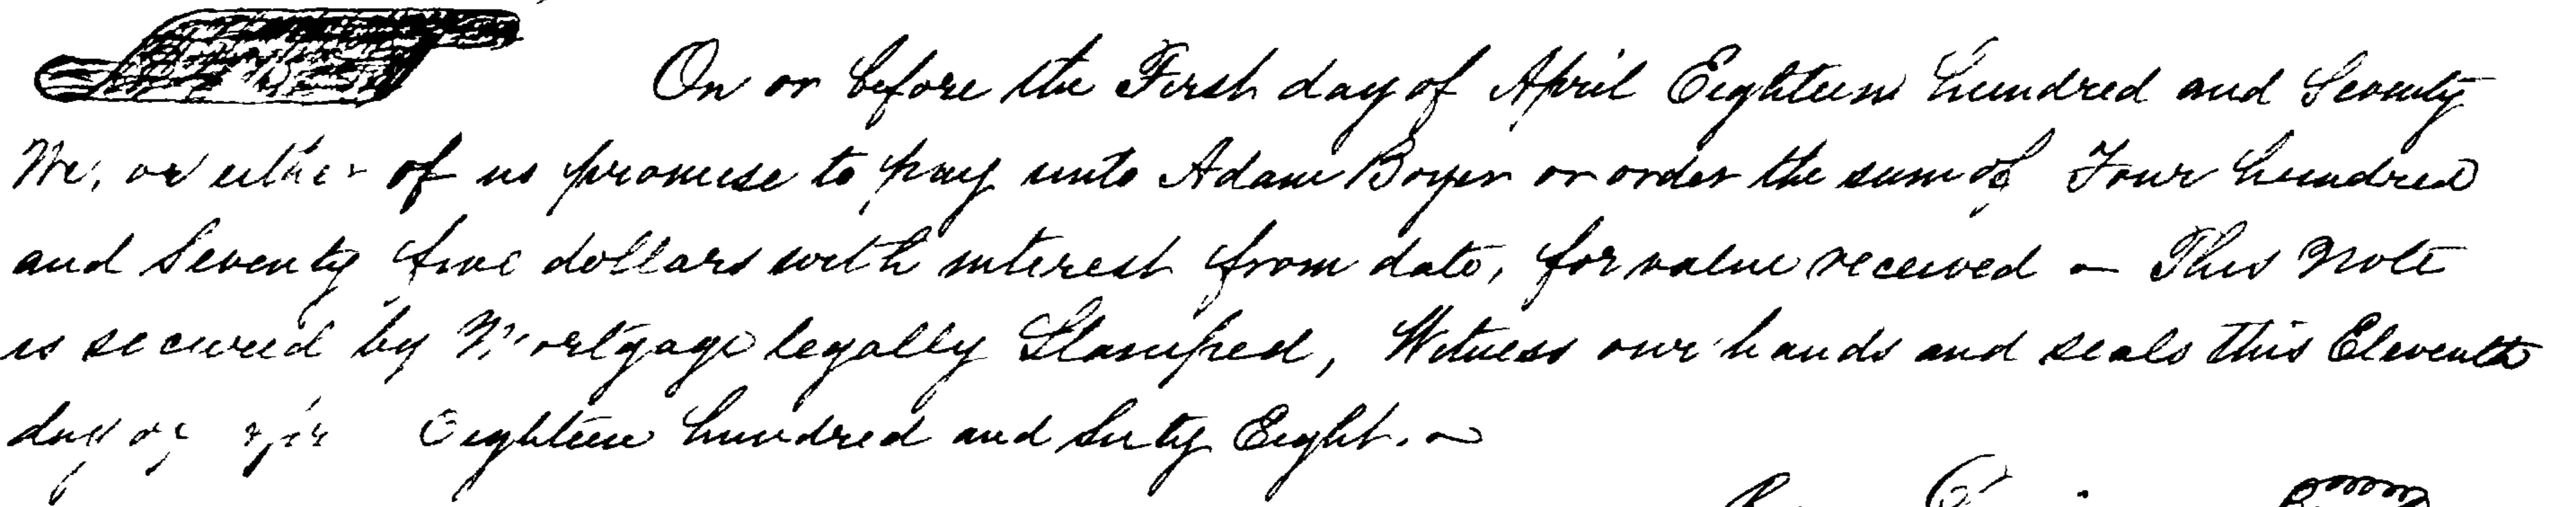 On or before the First day of April Eighteen hundred and Seventy
We, or either of us promise to pay unto Adam Boyer or order the sum of Four hundred
and Seventy five dollars with interest from date, for value received — This Note
is secured by Mortgage legally Stamped, Witness our hands and seals this Eleventh
day of Eighteen hundred and Sixty Eight. —